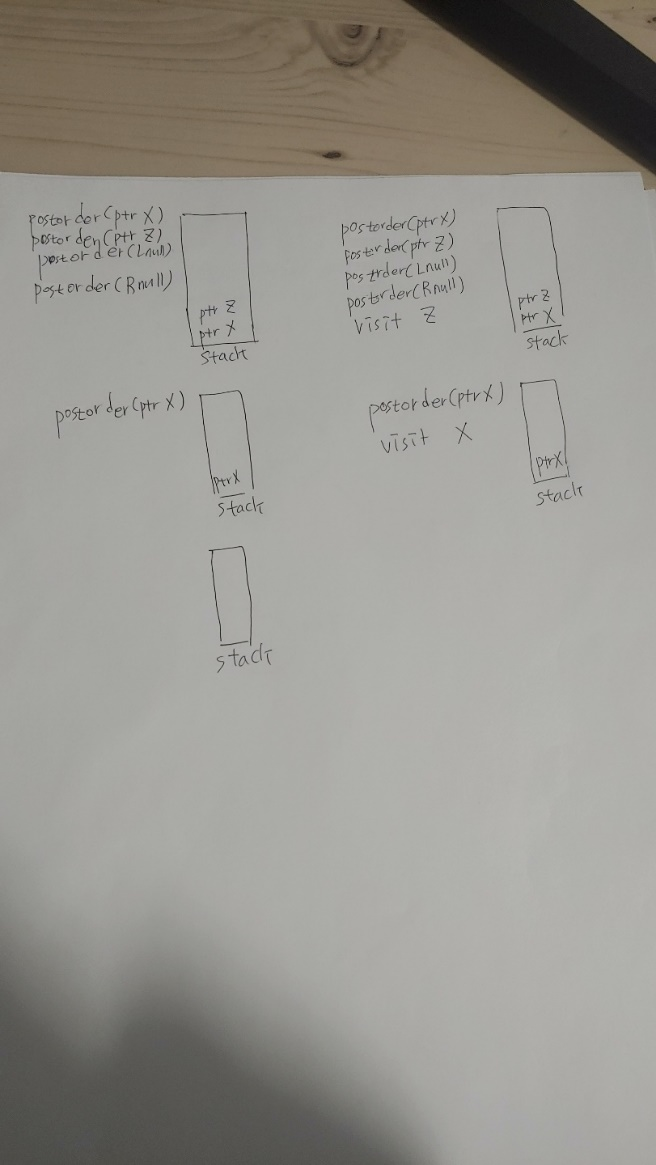 postorder(ptr X)
postorder(ptr Z)
postorder(Lnull)
postorder(Rnull)
ptr Z
ptr X
stack
postorder(ptr X)
postorder(ptr Z)
postrder(Lnull)
postrder(Rnull)
visit Z
ptr Z
ptr X
stack
postorder(ptr X)
ptr X
stack
postorder(ptr X)
visit X
ptr X
stack
stack